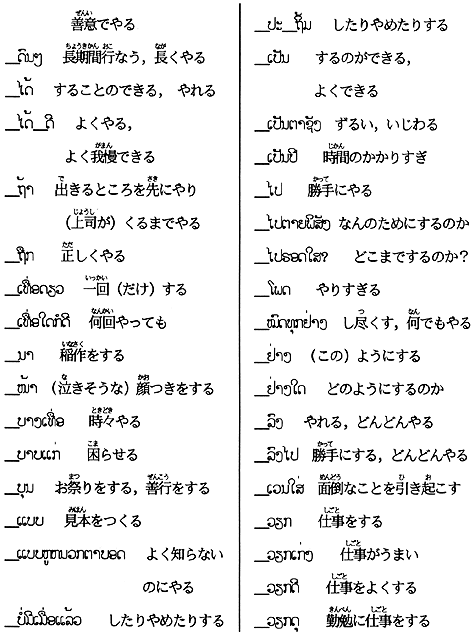 善意でやる
__ດົນໆ 長期間行なう，長くやる
__ໄດ້ することのできる， やれる
__ໄດ້__ດີ よくやる，
よく我慢できる
__ຖ້າ 出きるところを先にやり
（上司が）くるまでやる
__ຖືກ 正しくやる
__ເທື່ອດຽວ 一回（だけ）する
__ເທື່ອໃດກໍດີ 何回やっても
__ນາ 稲作をする
__ໜ້າ （泣きそうな）顔つきをする
__ບາງເທື່ອ 時々やる
__ບາບແກ່ 困らせる
__ບຸນ お祭りをする，善行をする
__ແບບ 見本をつくる
__ແບບຫູຫນວກຕາບອດ よく知らない
のにやる
__ບໍ່ມີເມື່ອແລ້ວ したりやめたりする
__ປະ__ຖິ້ມ したりやめたりする
__ເປັນ するのができる，
よくできる
__ເປັນຕາຊັງ ずるい，いじわる
__ເປັນປີ 時間のかかりすぎ
__ໄປ 勝手にやる
__ໄປຕາຍຜີສັງ なんのためにするのか
__ໄປຮອດໃສ? どこまでするのか？
__ໂພດ やりすぎる
__ໝົດທຸກຢ່າງ し尽くす，何でもやる
__ຢ່າງ （この）ようにする
__ຢ່າງໃດ どのようにするのか
__ລົງ やれる，どんどんやる
__ລົງໄປ 勝手にする，どんどんやる
__ເວນໃສ່ 面倒なことを引き起こす
__ວຽກ 仕事をする
__ວຽກເກ່ງ 仕事がうまい
__ວຽກດີ 仕事をよくする
__ວຽກດຸ 勤勉に仕事をする